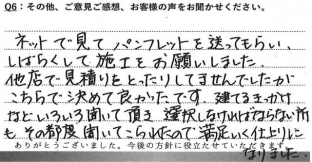 Q6：その他、ご意見ご感想、お客様の声をお聞かせください。
ネットで見てパンフレットを送ってもらい、
しばらくして施工をお願いしました。
他店で見積りをとったりしてませんでしたが
こちらで決めて良かったです。建てるきっかけ
などいろいろ聞いて頂き 選択しなければならない所
も その都度 聞いてこられたので 満足いく仕上りに
なりました.
ありがとうございました。今後の方針に役立たせていただきます